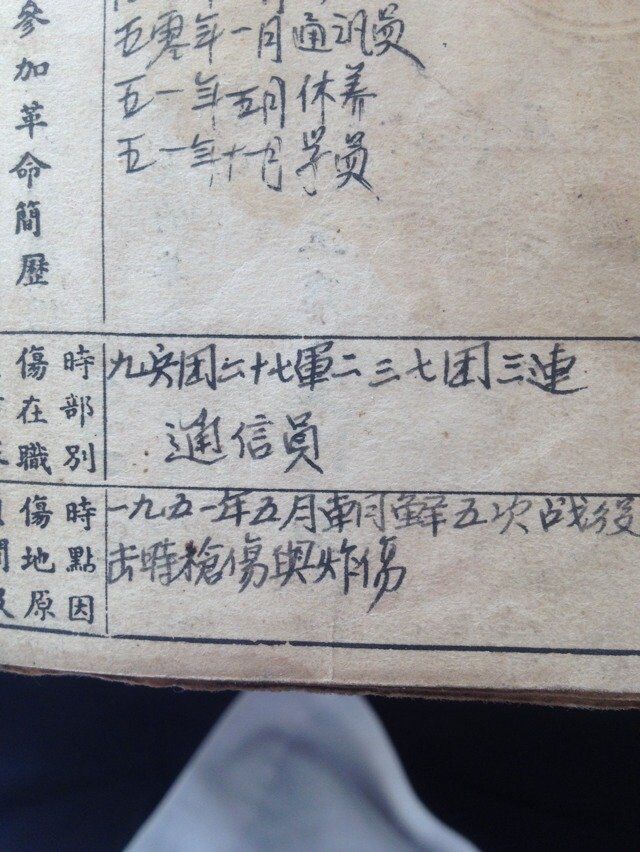 參加革命簡歷
五零年一月通讯员
五一年五月休养
五一年十一月学员
時部別
傷在職
九兵团二十七軍二三七团三連
通信員
時點因
傷地原
一九五一年五月朝鲜五次战後
击時槍傷與炸傷